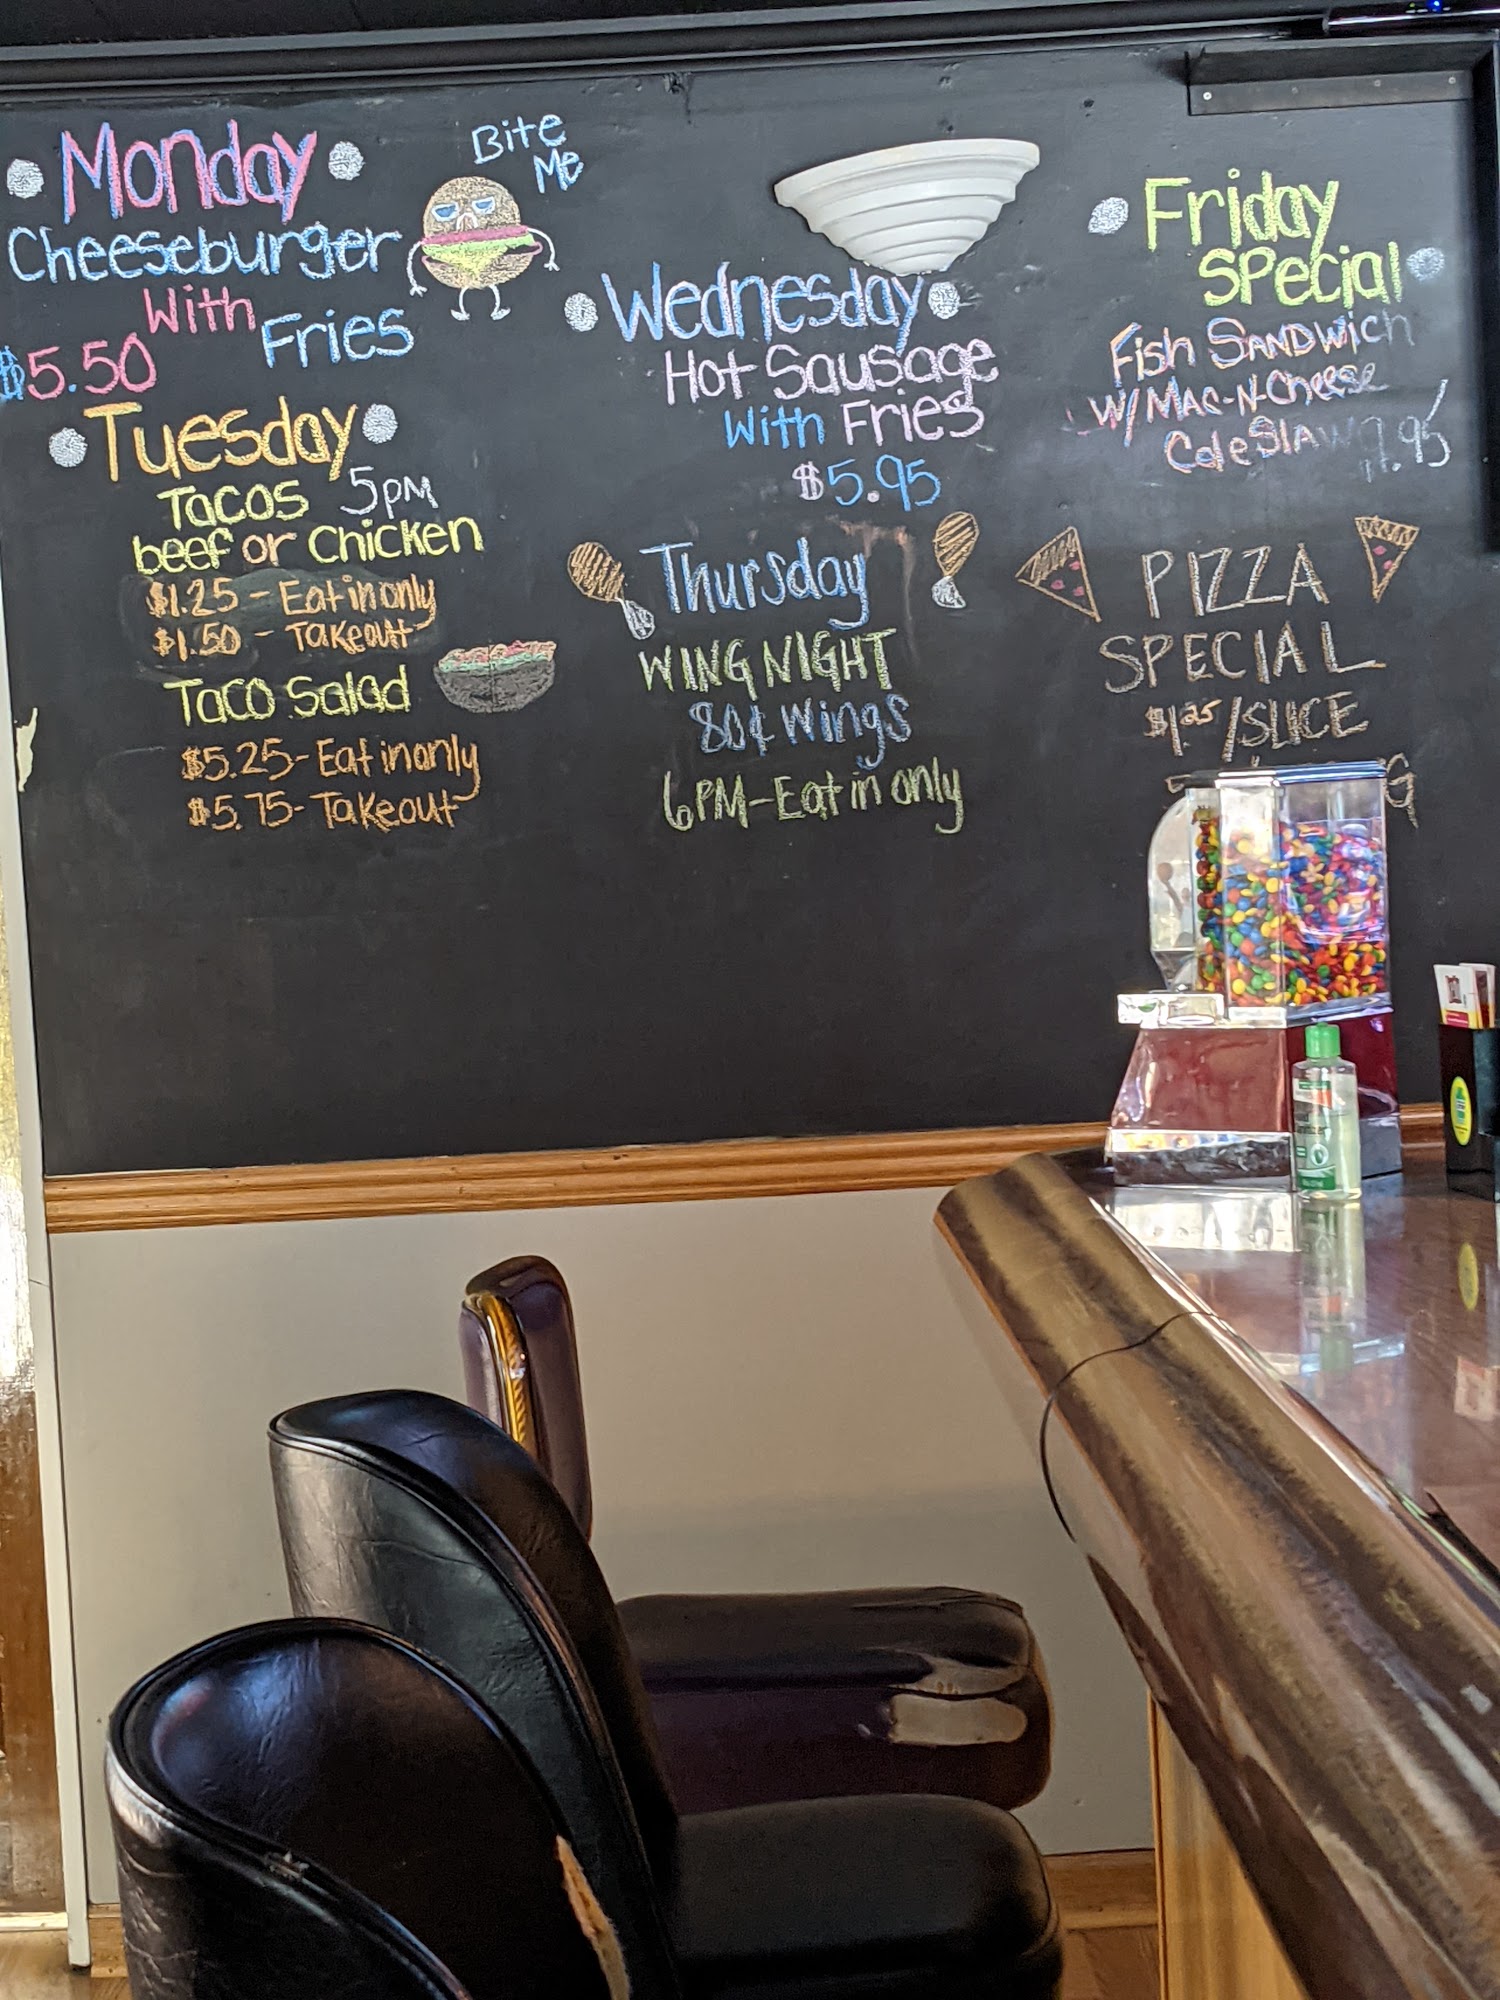 Monday
Cheeseburger
With Fries
$5.50
Bite
Me
Tuesday
Tacos 5PM
beef or Chicken
$1.25 - Eat in only
$1.50 - Takeout
Taco Salad
$5.25 - Eat in only
$5.75 - Takeout
Wednesday
Hot Sausage
With Fries
$5.95
Thursday
WING NIGHT
80¢ Wings
6PM - Eat in only
Friday
Special
Fish SANDWich
W/ MAC-N-Cheese
ColeSlAW 7.95
PIZZA
SPECIAL
$1.25/SLICE